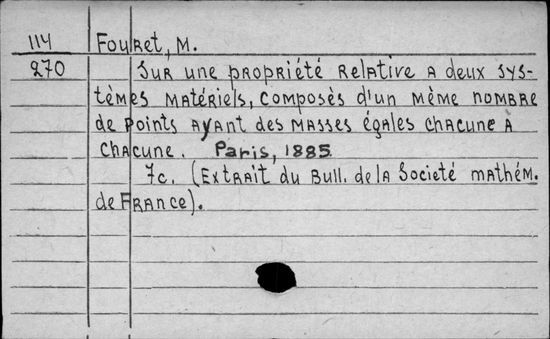 114 Fouret, M.
270 Sur une propriété relative a deux sys-
tèmes matériels, composès d'un mème nombre
de points ayant des masses égales chacune a
chacune. Paris, 1885.
7c. (Extrait du Bull. de la Societé mathém.
de France).